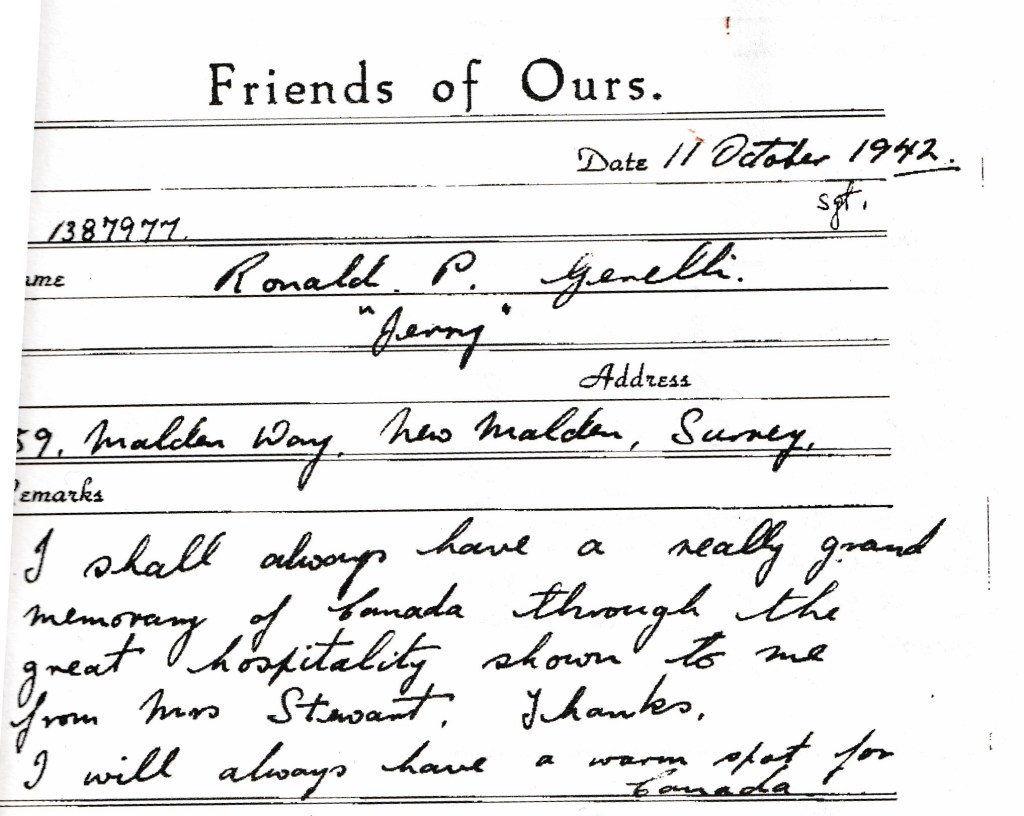 Friends of Ours.
Date 11 October 1942.
sgt.
1387977.
ame Ronald. P. Genelli.
"Jerry"
Address
59, Malden Way, New Malden, Surrey,
emarks
I shall always have a really grand
memorary of Canada through the
great hospitality shown to me
from Mrs Stewart. Thanks.
I will always have a warm spot for
Canada